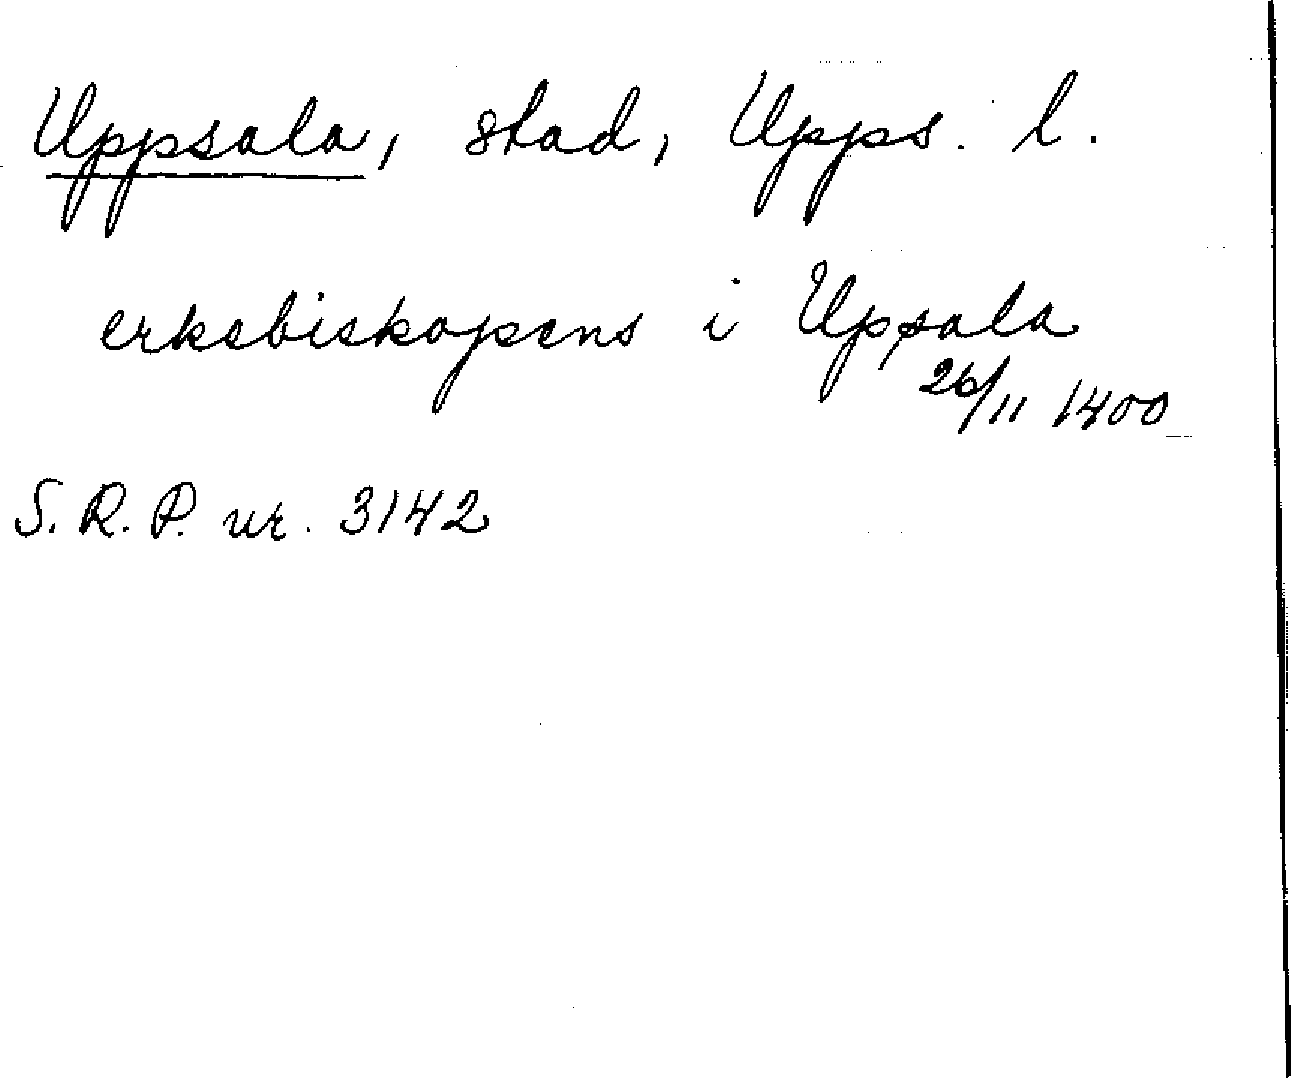 Uppsala, stad, Upps. l.
erkebiskopens i Upsala
26/11 1400
S. R. P. nr. 3142